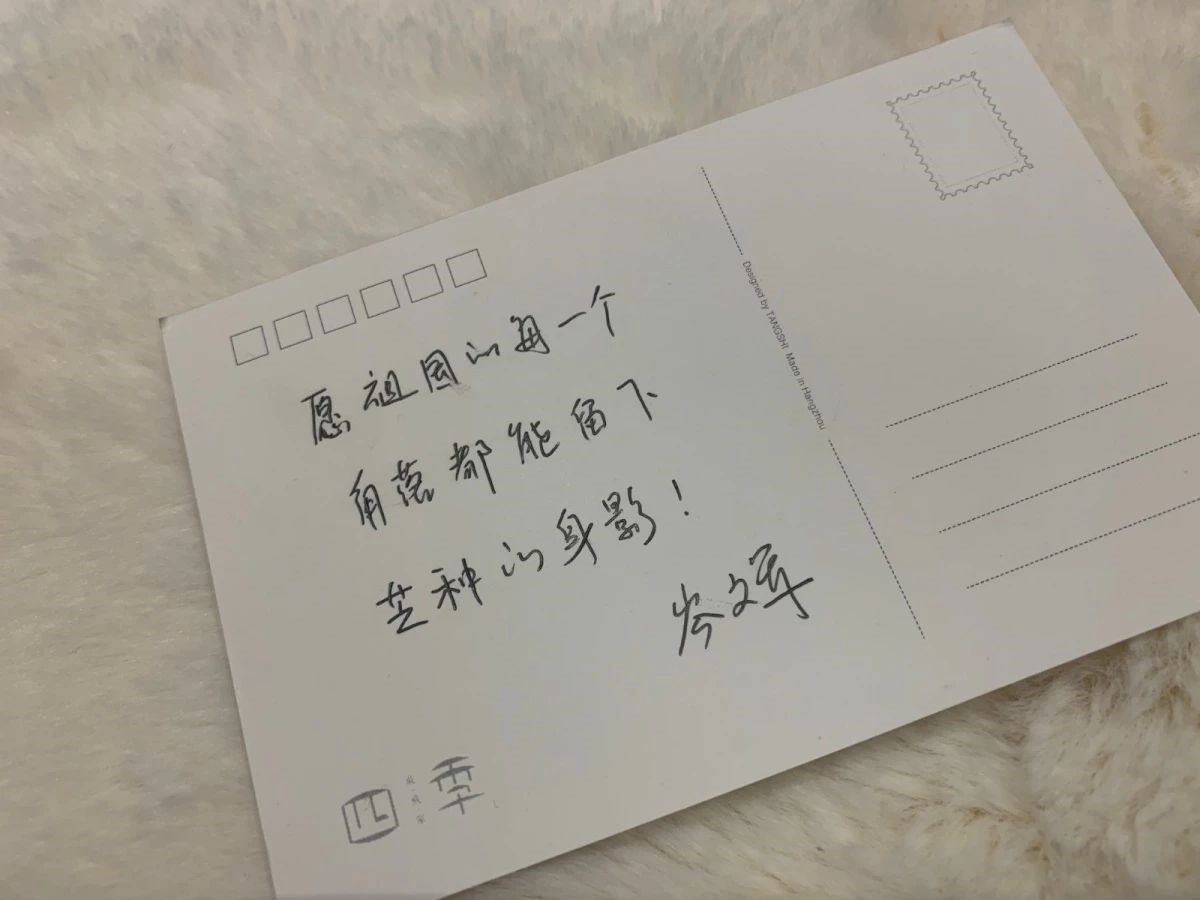 愿祖国的每一个
角落都能留下
芒种的身影！
岑文军
Designed by TANGSHI Made in Hangzhou
四季